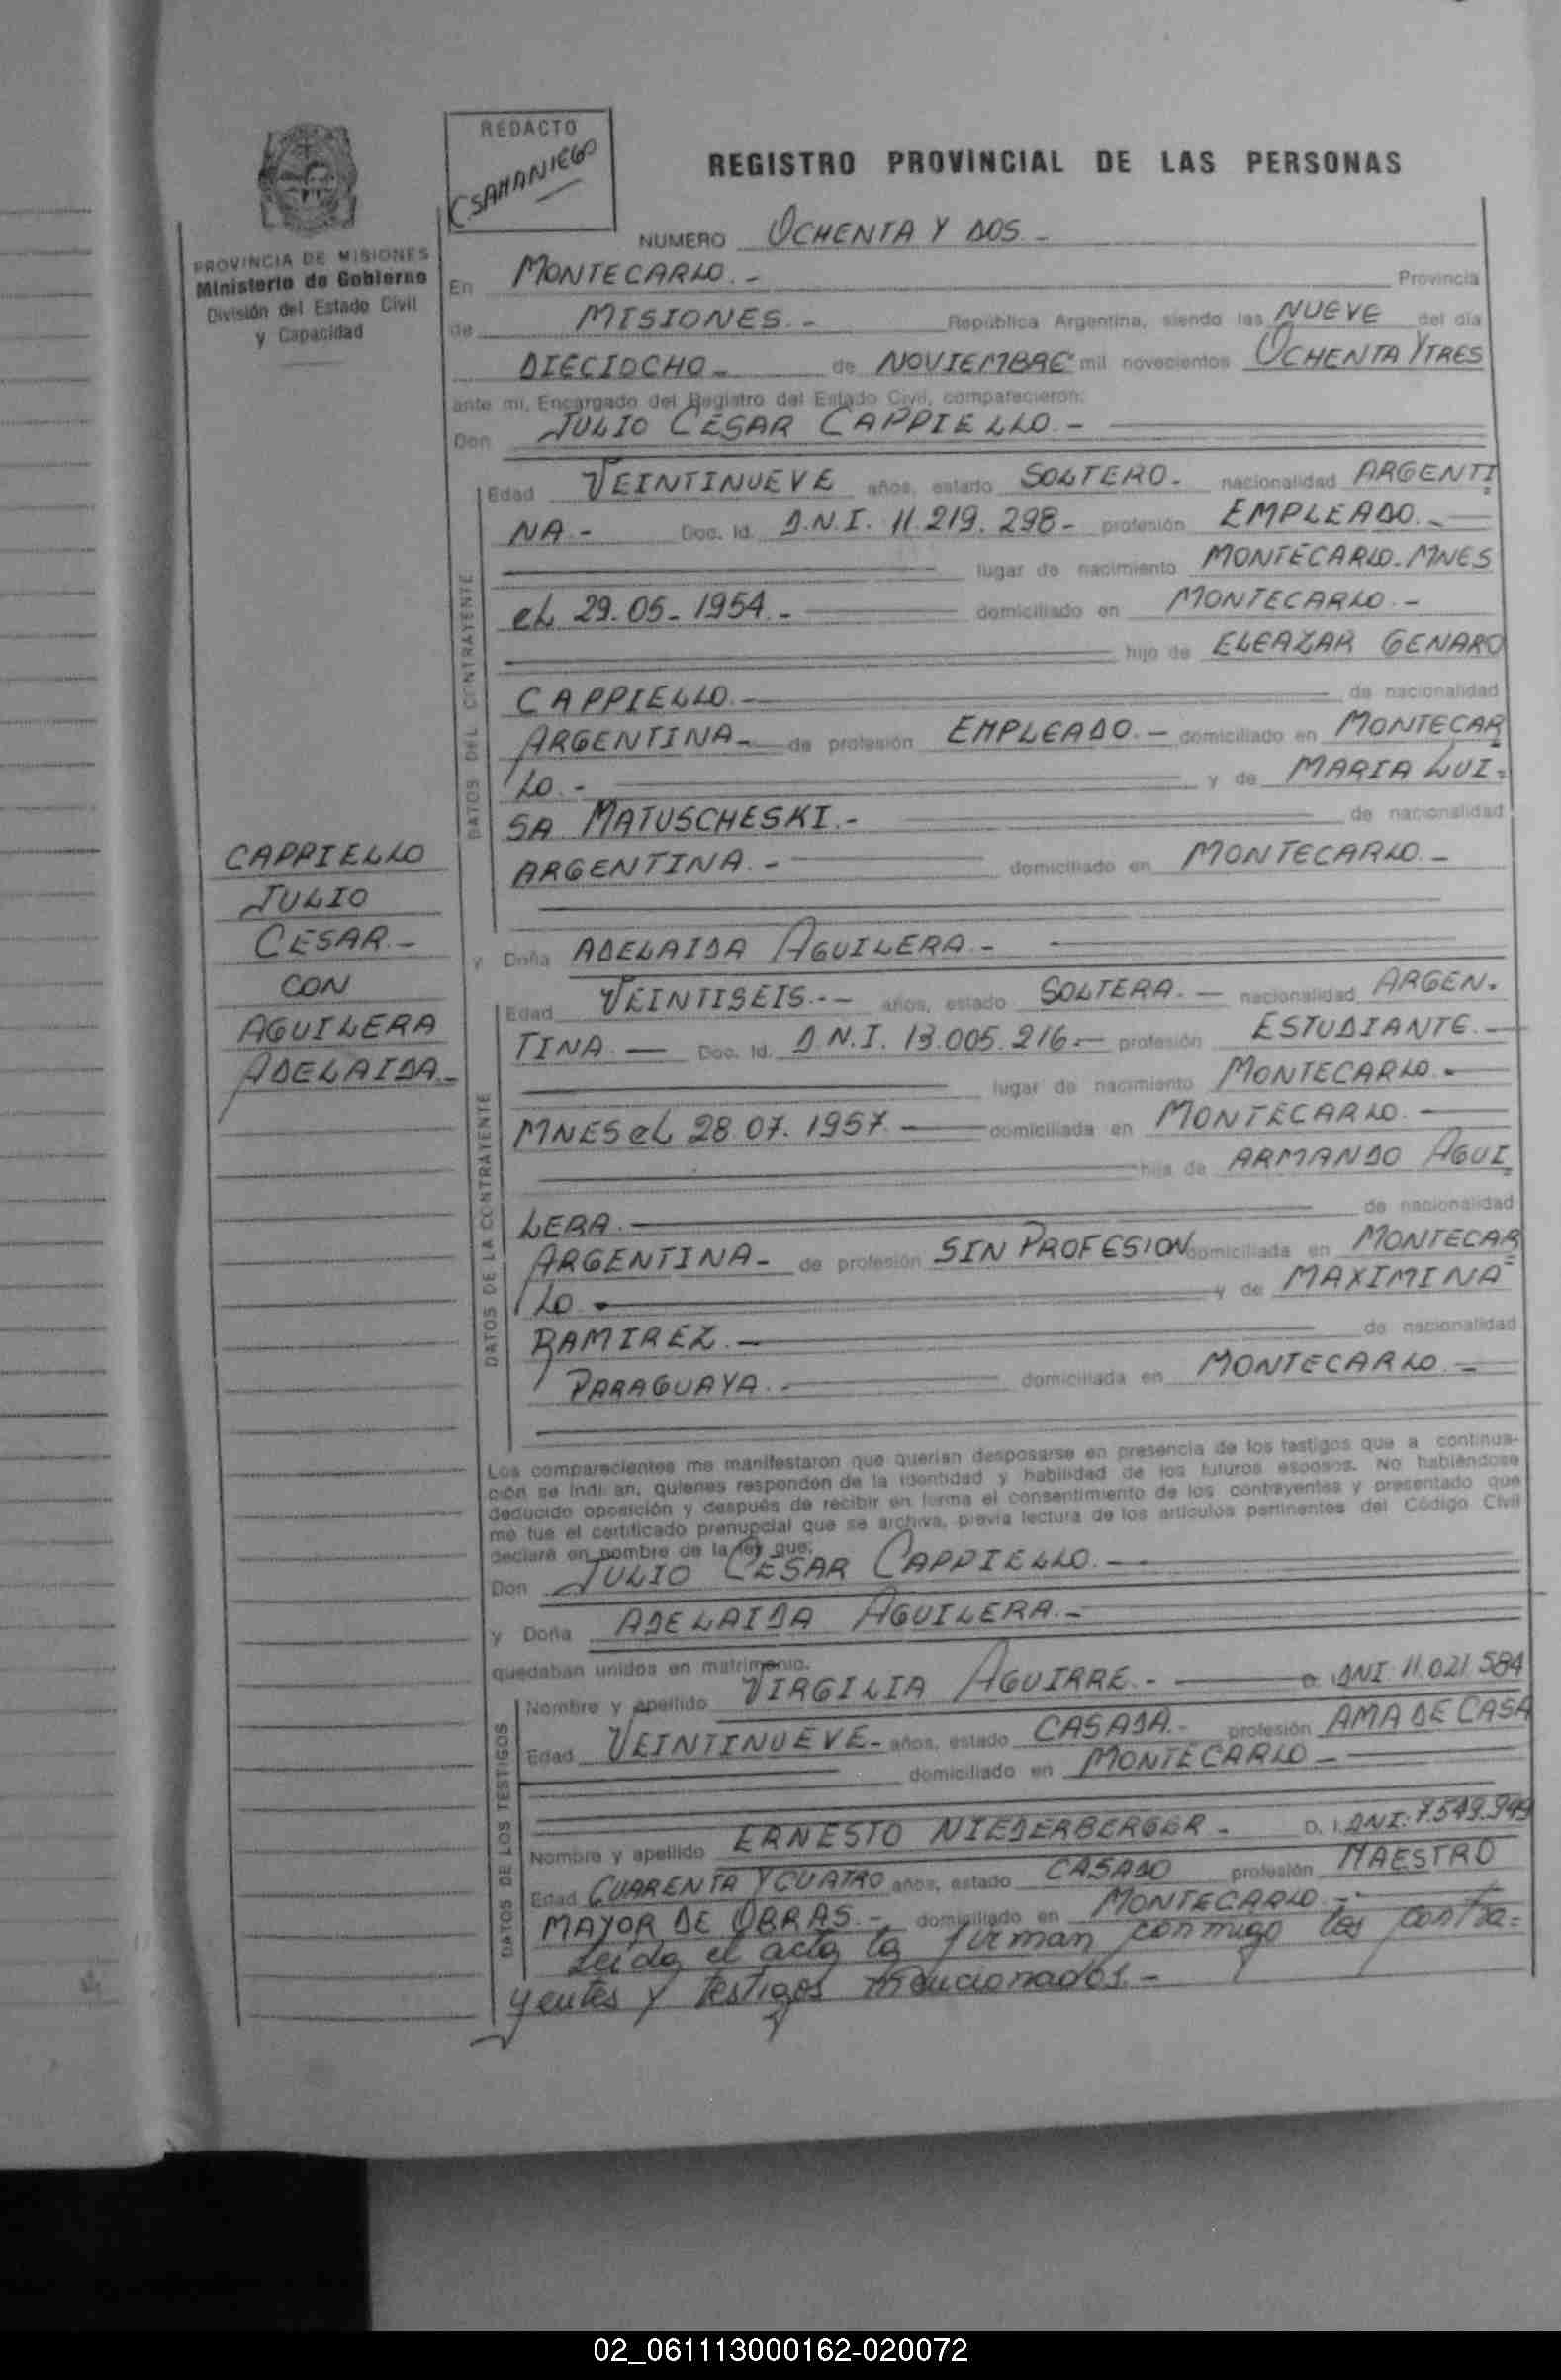 REDACTO
CSAMANIEGO
REGISTRO PROVINCIAL DE LAS PERSONAS
PROVINCIA DE MISIONES
Ministerio de Gobierno
División del Estado Civil
y Capacidad
NUMERO OCHENTA Y DOS.-
En MONTECARLO.- Provincia
de MISIONES.- República Argentina, siendo las NUEVE del día
DIECIOCHO- de NOVIEMBRE mil novecientos OCHENTA Y TRES
ante mi, Encargado del Registro del Estado Civil, comparecieron:
Don JULIO CESAR CAPPIELLO.-
DATOS DEL CONTRAYENTE
Edad VEINTINUEVE años, estado SOLTERO.- nacionalidad ARGENTI
NA.- Doc. Id. D.N.I. 11.219.298- profesión EMPLEADO.-
lugar de nacimiento MONTECARLO-MNES
eL 29.05-1954.- domiciliado en MONTECARLO.-
hijo de ELEAZAR GENARO
CAPPIELLO.- de nacionalidad
ARGENTINA- de profesión EMPLEADO.- domiciliado en MONTECAR
LO.- y de MARIA LUI-
SA MATUSCHESKI.- de nacionalidad
ARGENTINA.- domiciliado en MONTECARLO.-
CAPPIELLO
JULIO
CESAR.-
CON
AGUILERA
ADELAIDA.-
y Doña ADELAIDA AGUILERA.-
DATOS DE LA CONTRAYENTE
Edad VEINTISEIS.-- años, estado SOLTERA.- nacionalidad ARGEN-
TINA.- Doc. Id. D.N.I. 13.005.216.- profesión ESTUDIANTE.-
lugar de nacimiento MONTECARLO.-
MNES eL 28.07.1957.- domiciliada en MONTECARLO.-
hija de ARMANDO AGUI
LERA.- de nacionalidad
ARGENTINA- de profesión SIN PROFESION domiciliada en MONTECAR
LO.- y de MAXIMINA
RAMIREZ.- de nacionalidad
PARAGUAYA.- domiciliada en MONTECARLO.-
Los comparecientes me manifestaron que querían desposarse en presencia de los testigos que a continua-
ción se indi an, quienes responden de la identidad y habilidad de los futuros esposos. No habiéndose
deducido oposición y después de recibir en forma el consentimiento de los contrayentes y presentado que
me fue el certificado prenupcial que se archiva, previa lectura de los artículos pertinentes del Código Civil
declaré en nombre de la ley que:
Don JULIO CESAR CAPPIELLO.-
y Doña ADELAIDA AGUILERA.-
quedaban unidos en matrimonio.
DATOS DE LOS TESTIGOS
Nombre y apellido VIRGILIA AGUIRRE.- D. DNI 11.021.584
Edad VEINTINUEVE- años, estado CASADA.- profesión AMA DE CASA
domiciliado en MONTECARLO-
Nombre y apellido ERNESTO NIEDERBERGER- D. I. DNI: 7.549.949
Edad CUARENTA Y CUATRO años, estado CASADO profesión MAESTRO
MAYOR DE OBRAS.- domiciliado en MONTECARLO.-
Leida el acta la firman conmigo los contra-
yentes y testigos mencionados.-
02_061113000162-020072